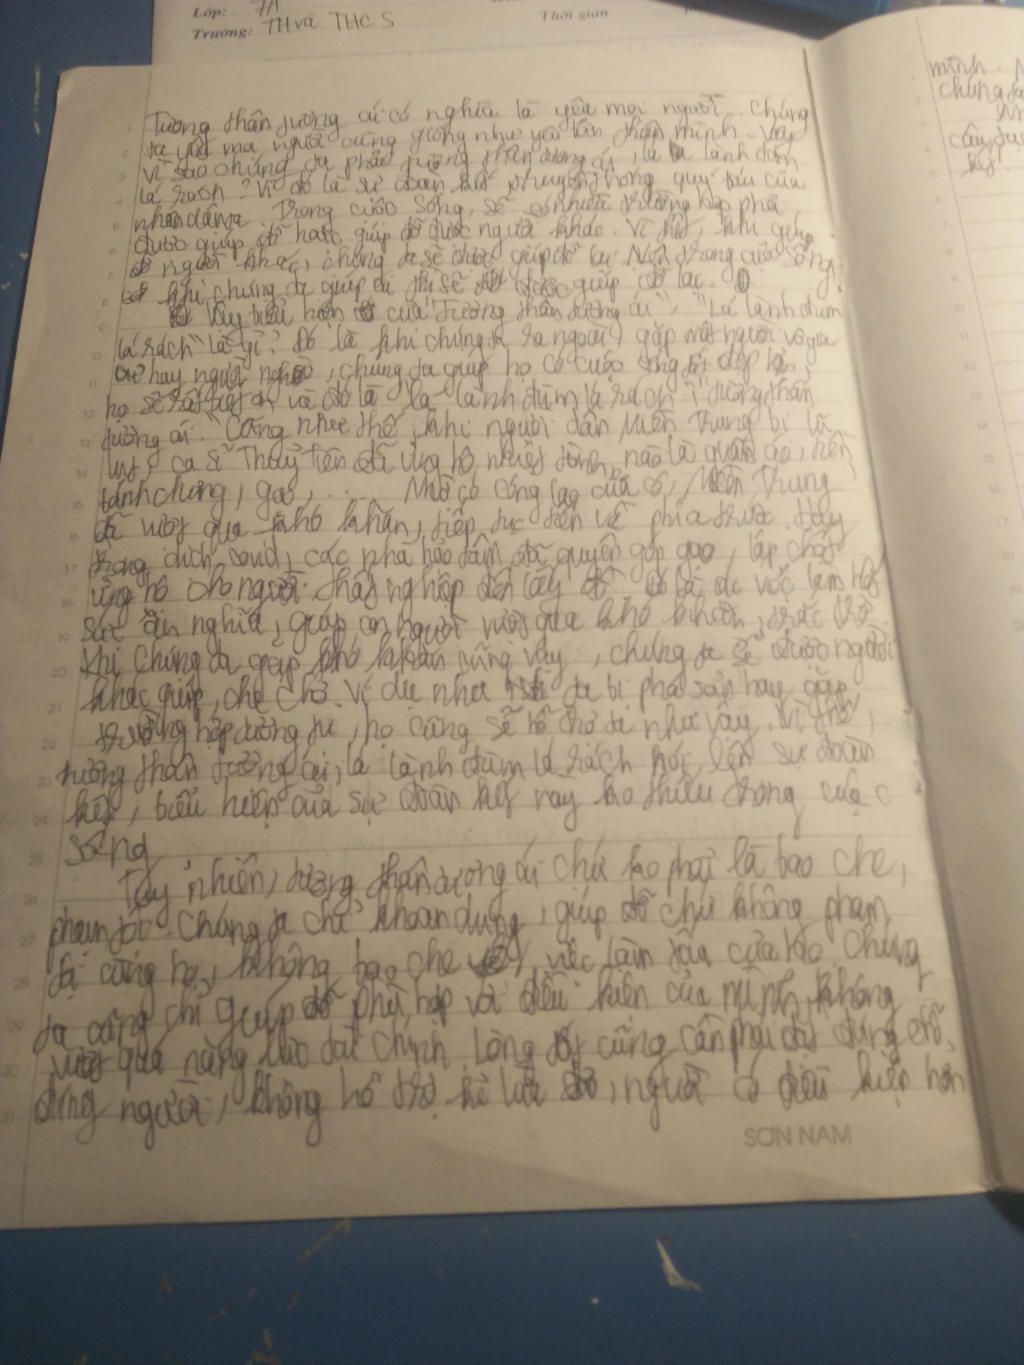 Lớp: 7A
Thời gian
Trường: TH và THCS
Tương thân tương ái có nghĩa là yêu mọi người. Chúng
ta yêu mọi người cũng giống như yêu bản thân mình. Vậy
vì sao chúng ta phải tương thân tương ái, lá lành đùm
lá rách? Vì đó là sự đoàn kết truyền thống quý báu của
nhân dân ta. Trong cuộc sống, sẽ có nhiều trường hợp phải
được giúp đỡ hoặc giúp đỡ được người khác. Vì thế, khi giúp
đỡ người khác, chúng ta sẽ được giúp đỡ lại. Nên trong cuộc sống,
khi chúng ta giúp đỡ thì sẽ được giúp đỡ lại.
Vậy biểu hiện của "Tương thân tương ái", "Lá lành đùm
lá rách" là gì? Đó là khi chúng ta ra ngoài, gặp một người vô gia
cư hay người nghèo, chúng ta giúp họ có cuộc sống tốt đẹp hơn,
họ sẽ rất biết ơn và đó là "lá lành đùm lá rách", "tương thân
tương ái." Cũng như thế, khi người dân Miền Trung bị lũ
lụt, ca sĩ Thuỷ Tiên đã ủng hộ nhiệt tình, nào là quần áo, tiền,
bánh chưng, gạo, .... Nhờ có công lao của cô, Miền Trung
đã vượt qua khó khăn, tiếp tục tiến về phía trước. Hay
trong dịch covid, các nhà hảo tâm đã quyên góp gạo, lập chốt
ủng hộ cho người thất nghiệp đến lấy đồ. Đó là các việc làm hết
sức ân nghĩa, giúp con người vượt qua khó khăn, trắc trở.
Khi chúng ta gặp khó khăn cũng vậy, chúng ta sẽ được người
khác giúp, che chở. Ví dụ như ta bị phá sản hay gặp
trường hợp tương tự, họ cũng sẽ hỗ trợ ta như vậy. Vì thế,
tương thân tương ái, lá lành đùm lá rách nói lên sự đoàn
kết, biểu hiện của sự đoàn kết này ko thiếu trong cuộc
sống
Tuy nhiên, tương thân tương ái chứ ko phải là bao che,
phạm tội. Chúng ta chỉ khoan dung, giúp đỡ chứ không phạm
tội cùng họ, không bao che việc làm xấu của họ. Chúng
ta cũng chỉ giúp đỡ phù hợp với điều kiện của mình, không
vượt quá năng lực đó. Chính lòng tốt cũng cần phải đặt đúng chỗ,
đúng người, không hỗ trợ kẻ lừa đảo, người có điều kiện hơn
SƠN NAM
mình.
chúng ta
kết.